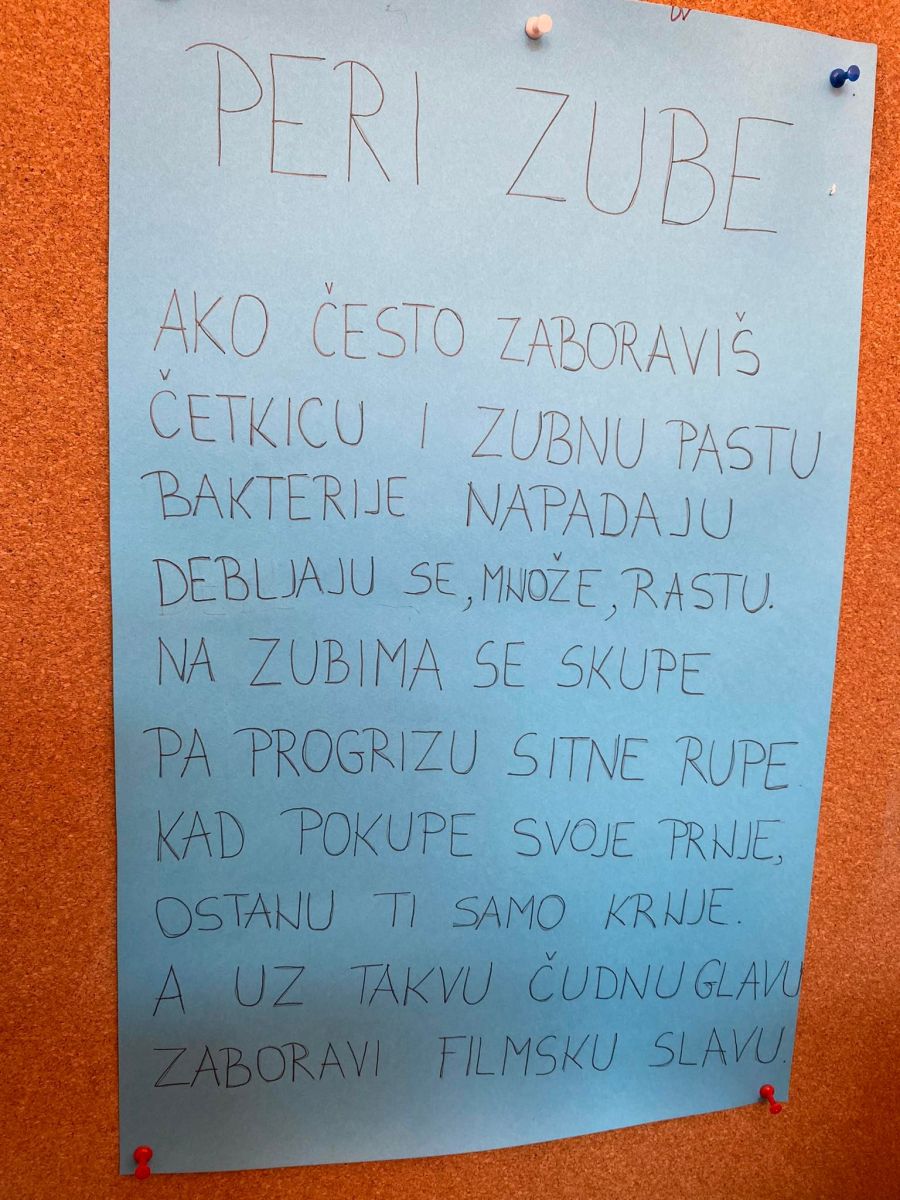 PERI ZUBE
AKO ČESTO ZABORAVIŠ
ČETKICU I ZUBNU PASTU
BAKTERIJE NAPADAJU
DEBLJAJU SE, MNOŽE, RASTU.
NA ZUBIMA SE SKUPE
PA PROGRIZU SITNE RUPE.
KAD POKUPE SVOJE PRNJE,
OSTANU TI SAMO KRNJE.
A UZ TAKVU ČUDNU GLAVU
ZABORAVI FILMSKU SLAVU.